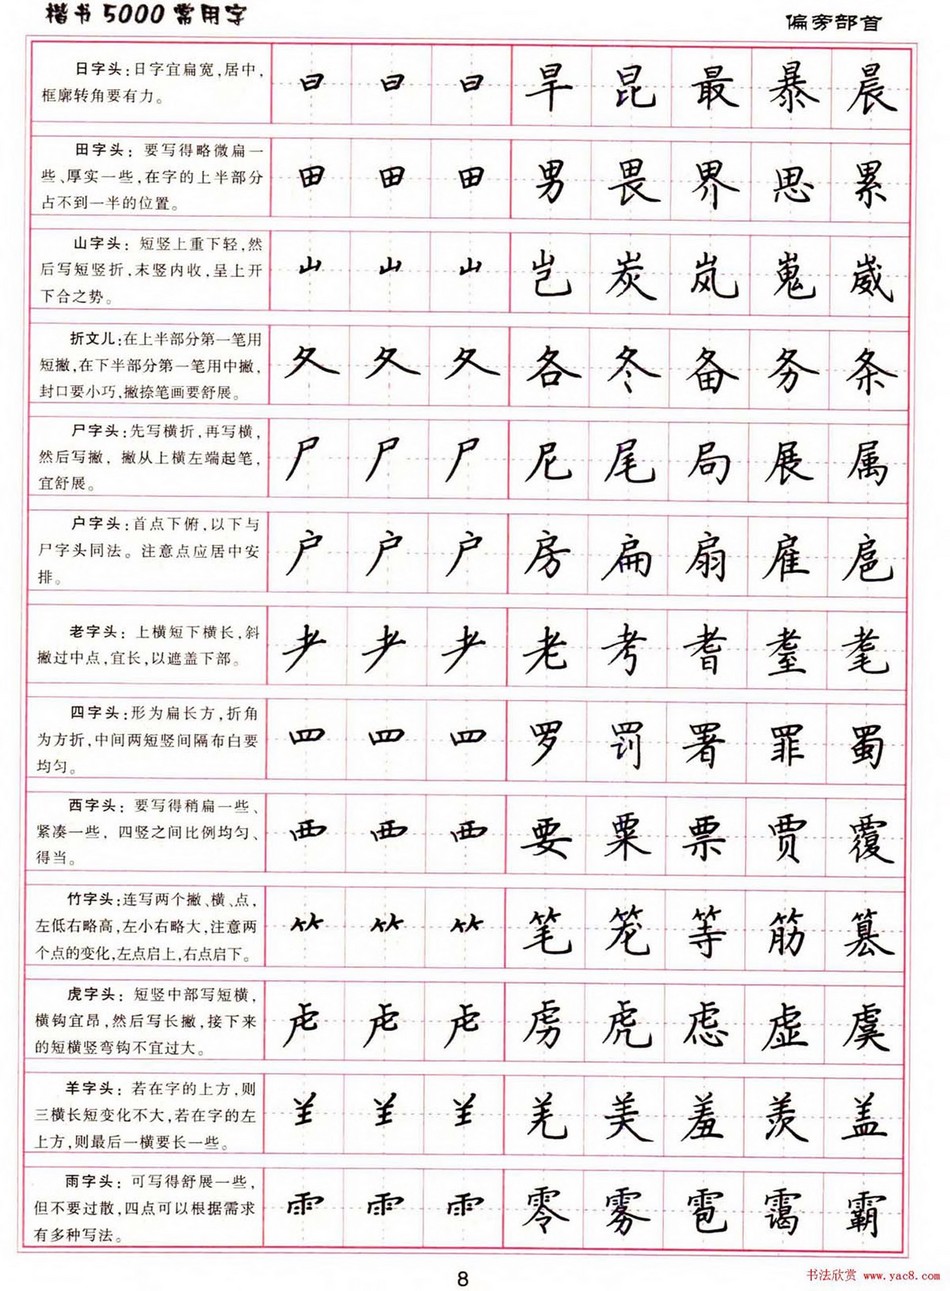 楷书5000常用字
偏旁部首
日字头:日字宜扁宽,居中,
框廓转角要有力。
日 日 日 旱 昆 最 暴 晨
田字头:要写得略微扁一
些、厚实一些,在字的上半部分
占不到一半的位置。
田 田 田 男 畏 界 思 累
山字头:短竖上重下轻,然
后写短竖折,末竖内收,呈上开
下合之势。
山 山 山 岂 炭 岚 嵬 崴
折文儿:在上半部分第一笔用
短撇,在下半部分第一笔用中撇,
封口要小巧,撇捺笔画要舒展。
夂 夂 夂 各 冬 备 务 条
尸字头:先写横折,再写横,
然后写撇,撇从上横左端起笔,
宜舒展。
尸 尸 尸 尼 尾 局 展 属
户字头:首点下俯,以下与
尸字头同法。注意点应居中安
排。
户 户 户 房 扁 扇 雇 扈
老字头:上横短下横长,斜
撇过中点,宜长,以遮盖下部。
耂 耂 耂 老 考 耆 耋 耄
四字头:形为扁长方,折角
为方折,中间两短竖间隔布白要
均匀。
罒 罒 罒 罗 罚 署 罪 蜀
西字头:要写得稍扁一些、
紧凑一些,四竖之间比例均匀、
得当。
覀 覀 覀 要 粟 票 贾 覆
竹字头:连写两个撇、横、点,
左低右略高,左小右略大,注意两
个点的变化,左点启上,右点启下。
⺮ ⺮ ⺮ 笔 笼 等 筋 篡
虎字头:短竖中部写短横,
横钩宜昂,然后写长撇,接下来
的短横竖弯钩不宜过大。
虍 虍 虍 虏 虎 虑 虚 虞
羊字头:若在字的上方,则
三横长短变化不大,若在字的左
上方,则最后一横要长一些。
𦍌 𦍌 𦍌 羌 美 羞 羡 盖
雨字头:可写得舒展一些,
但不要过散,四点可以根据需求
有多种写法。
⻗ ⻗ ⻗ 零 雾 雹 霭 霸
8
书法欣赏 www.yac8.com